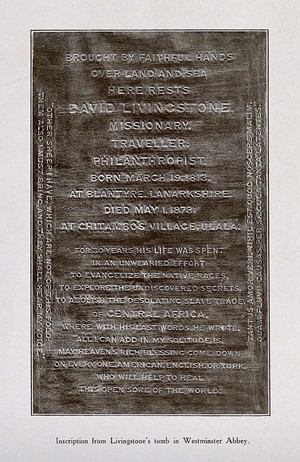 BROUGHT BY FAITHFUL HANDS
OVER LAND AND SEA
HERE RESTS
DAVID LIVINGSTONE,
MISSIONARY,
TRAVELLER,
PHILANTHROPIST,
BORN MARCH 19, 1813,
AT BLANTYRE, LANARKSHIRE,
DIED MAY 1, 1873,
AT CHITAMBO'S VILLAGE, ULALA.
FOR 30 YEARS HIS LIFE WAS SPENT
IN AN UNWEARIED EFFORT
TO EVANGELIZE THE NATIVE RACES,
TO EXPLORE THE UNDISCOVERED SECRETS,
TO ABOLISH THE DESOLATING SLAVE TRADE,
OF CENTRAL AFRICA,
WHERE WITH HIS LAST WORDS HE WROTE,
"ALL I CAN ADD IN MY SOLITUDE, IS,
MAY HEAVEN'S RICH BLESSING COME DOWN
ON EVERY ONE, AMERICAN, ENGLISH, OR TURK,
WHO WILL HELP TO HEAL
THIS OPEN SORE OF THE WORLD."
"OTHER SHEEP I HAVE, WHICH ARE NOT OF THIS FOLD:
THEM ALSO I MUST BRING, AND THEY SHALL HEAR MY VOICE."
TANTUS AMOR VERI, NIHIL EST QUOD NOSCERE MALIM,
QUAM FLUVII CAUSAS PER SÆCULA TANTA LATENTES.
Inscription from Livingstone's tomb in Westminster Abbey.